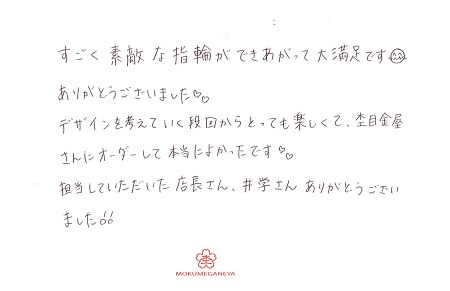 すごく素敵な指輪ができあがって大満足です
ありがとうございました♡♡
デザインを考えていく段回からとっても楽しくて、杢目金屋
さんにオーダーして本当によかったです♡♡
担当していただいた店長さん、井学さんありがとうござい
ました
MOKUMEGANEYA